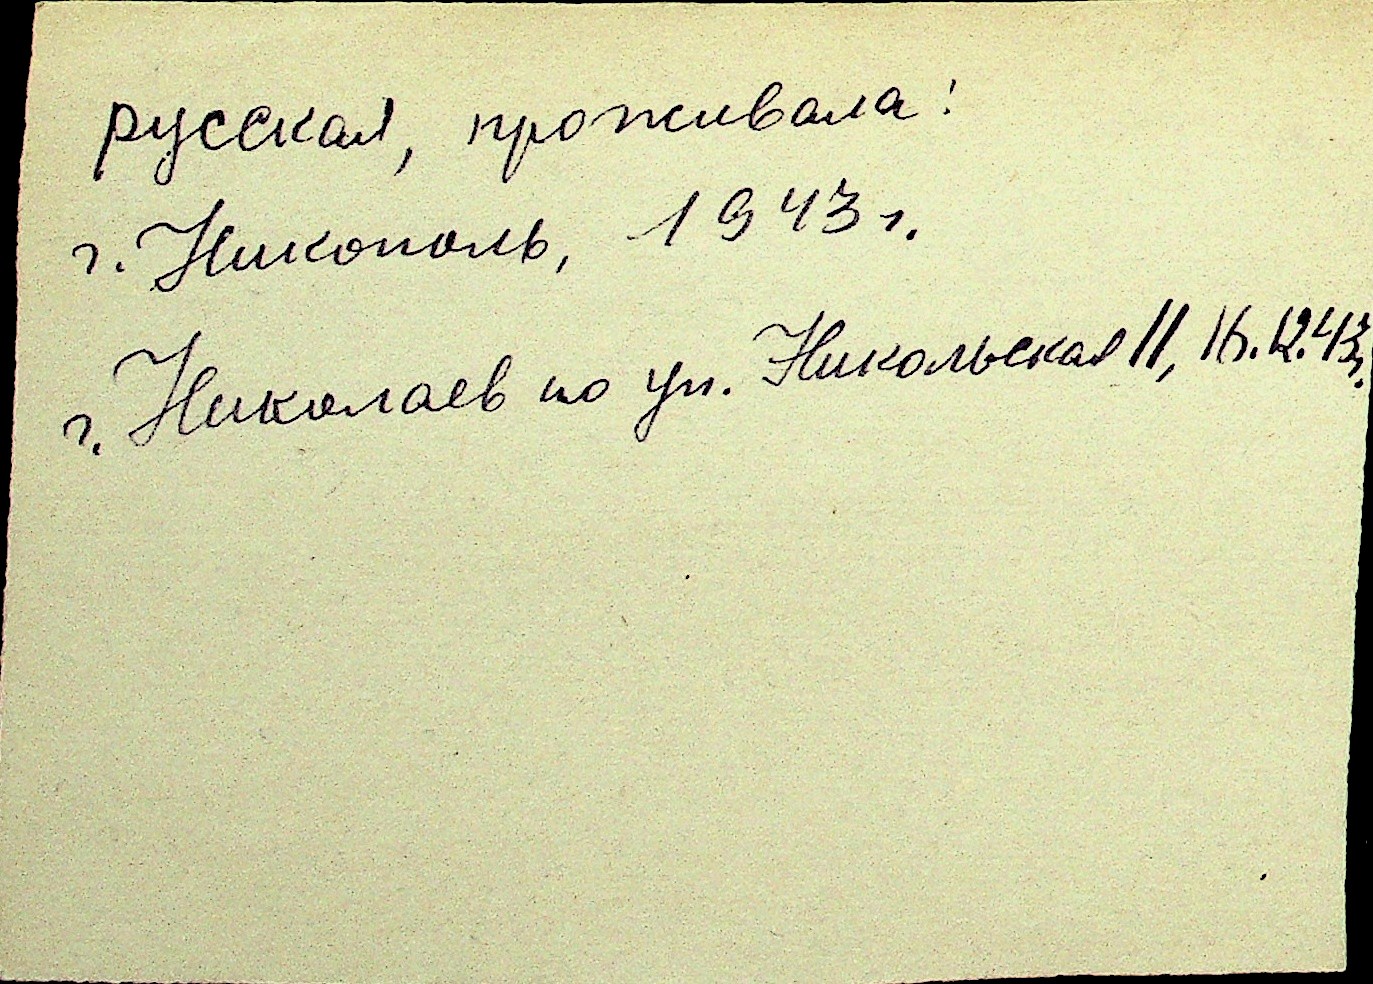 русская, проживала:
г. Никополь, 1943 г.
г. Николаев по ул. Никольская 11, 12.43.